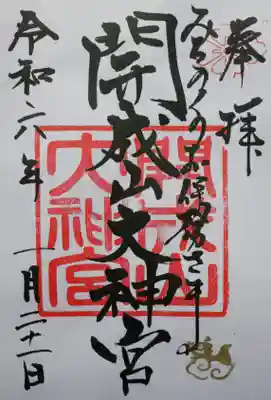 奉拝
みちのくのお伊勢さま
開成山大神宮
開成山大神宮
令和六年
一月二十一日